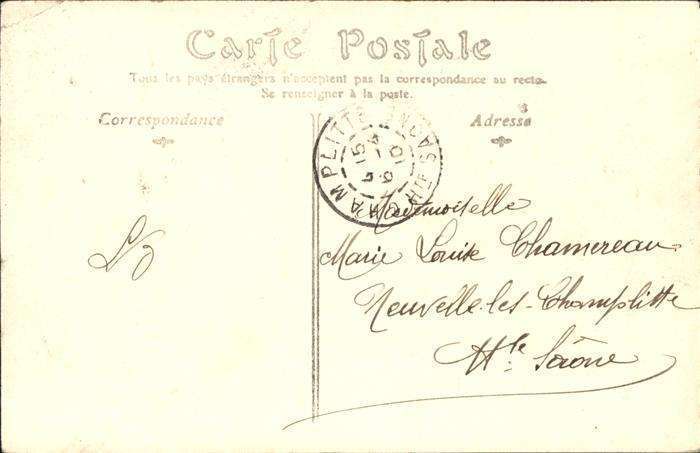 Carte Postale
Tous les pays étrangers n'acceptent pas la correspondance au recto.
Se renseigner à la poste.
Correspondance
Adresse
CHAMPLITTE HTE SAONE
Mademoiselle
Marie Louise Chamereau
Neuvelle-les-Champlitte
Hte Saône